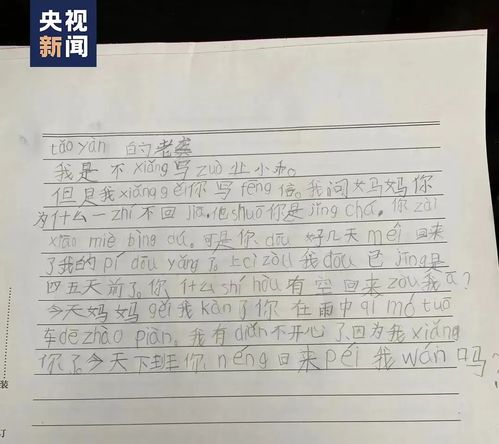 央视
新闻
tǎo yàn 的老爸
我是不xiǎng写zuò业小乖。
但是我xiǎng gěi你写fēng信。我问妈妈你
为什么一zhí不回jiā,他shuō你是jǐng chá,你zài
xiāo miè bìng dú。可是你dōu好几天méi回来
了我的pí dōu yǎng了。上cì zòu我dōu已jīng是
四五天前了。你什么shí hòu有空回来zòu我ā?
今天妈妈gěi我kàn了你在雨中qí mó tuō
车de zhào piàn。我有diǎn不开心了因为我xiǎng
你了今天下班你néng回来péi我wán吗?
装
订